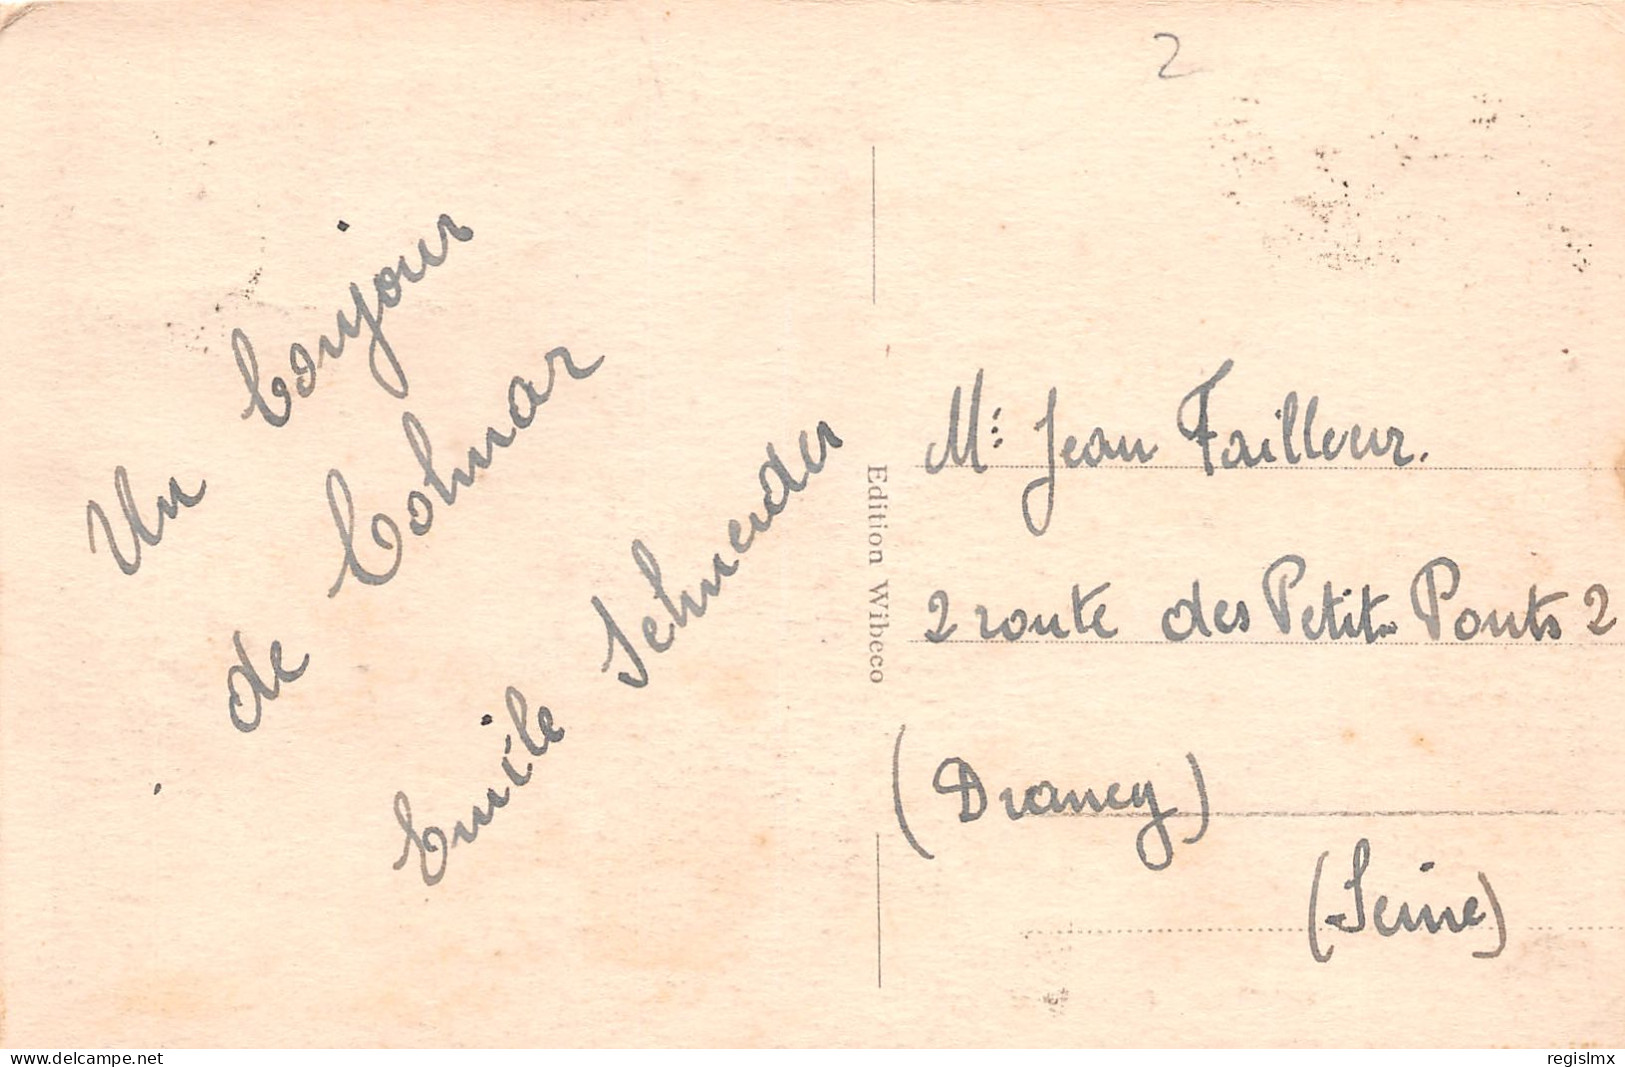 2
Un bonjour
de Colmar
Emile Schneider
Edition Wibeco
Mr. Jean Failleur.
2 route des Petits Ponts 2
(Drancy)
(Seine)
www.delcampe.net
regislmx